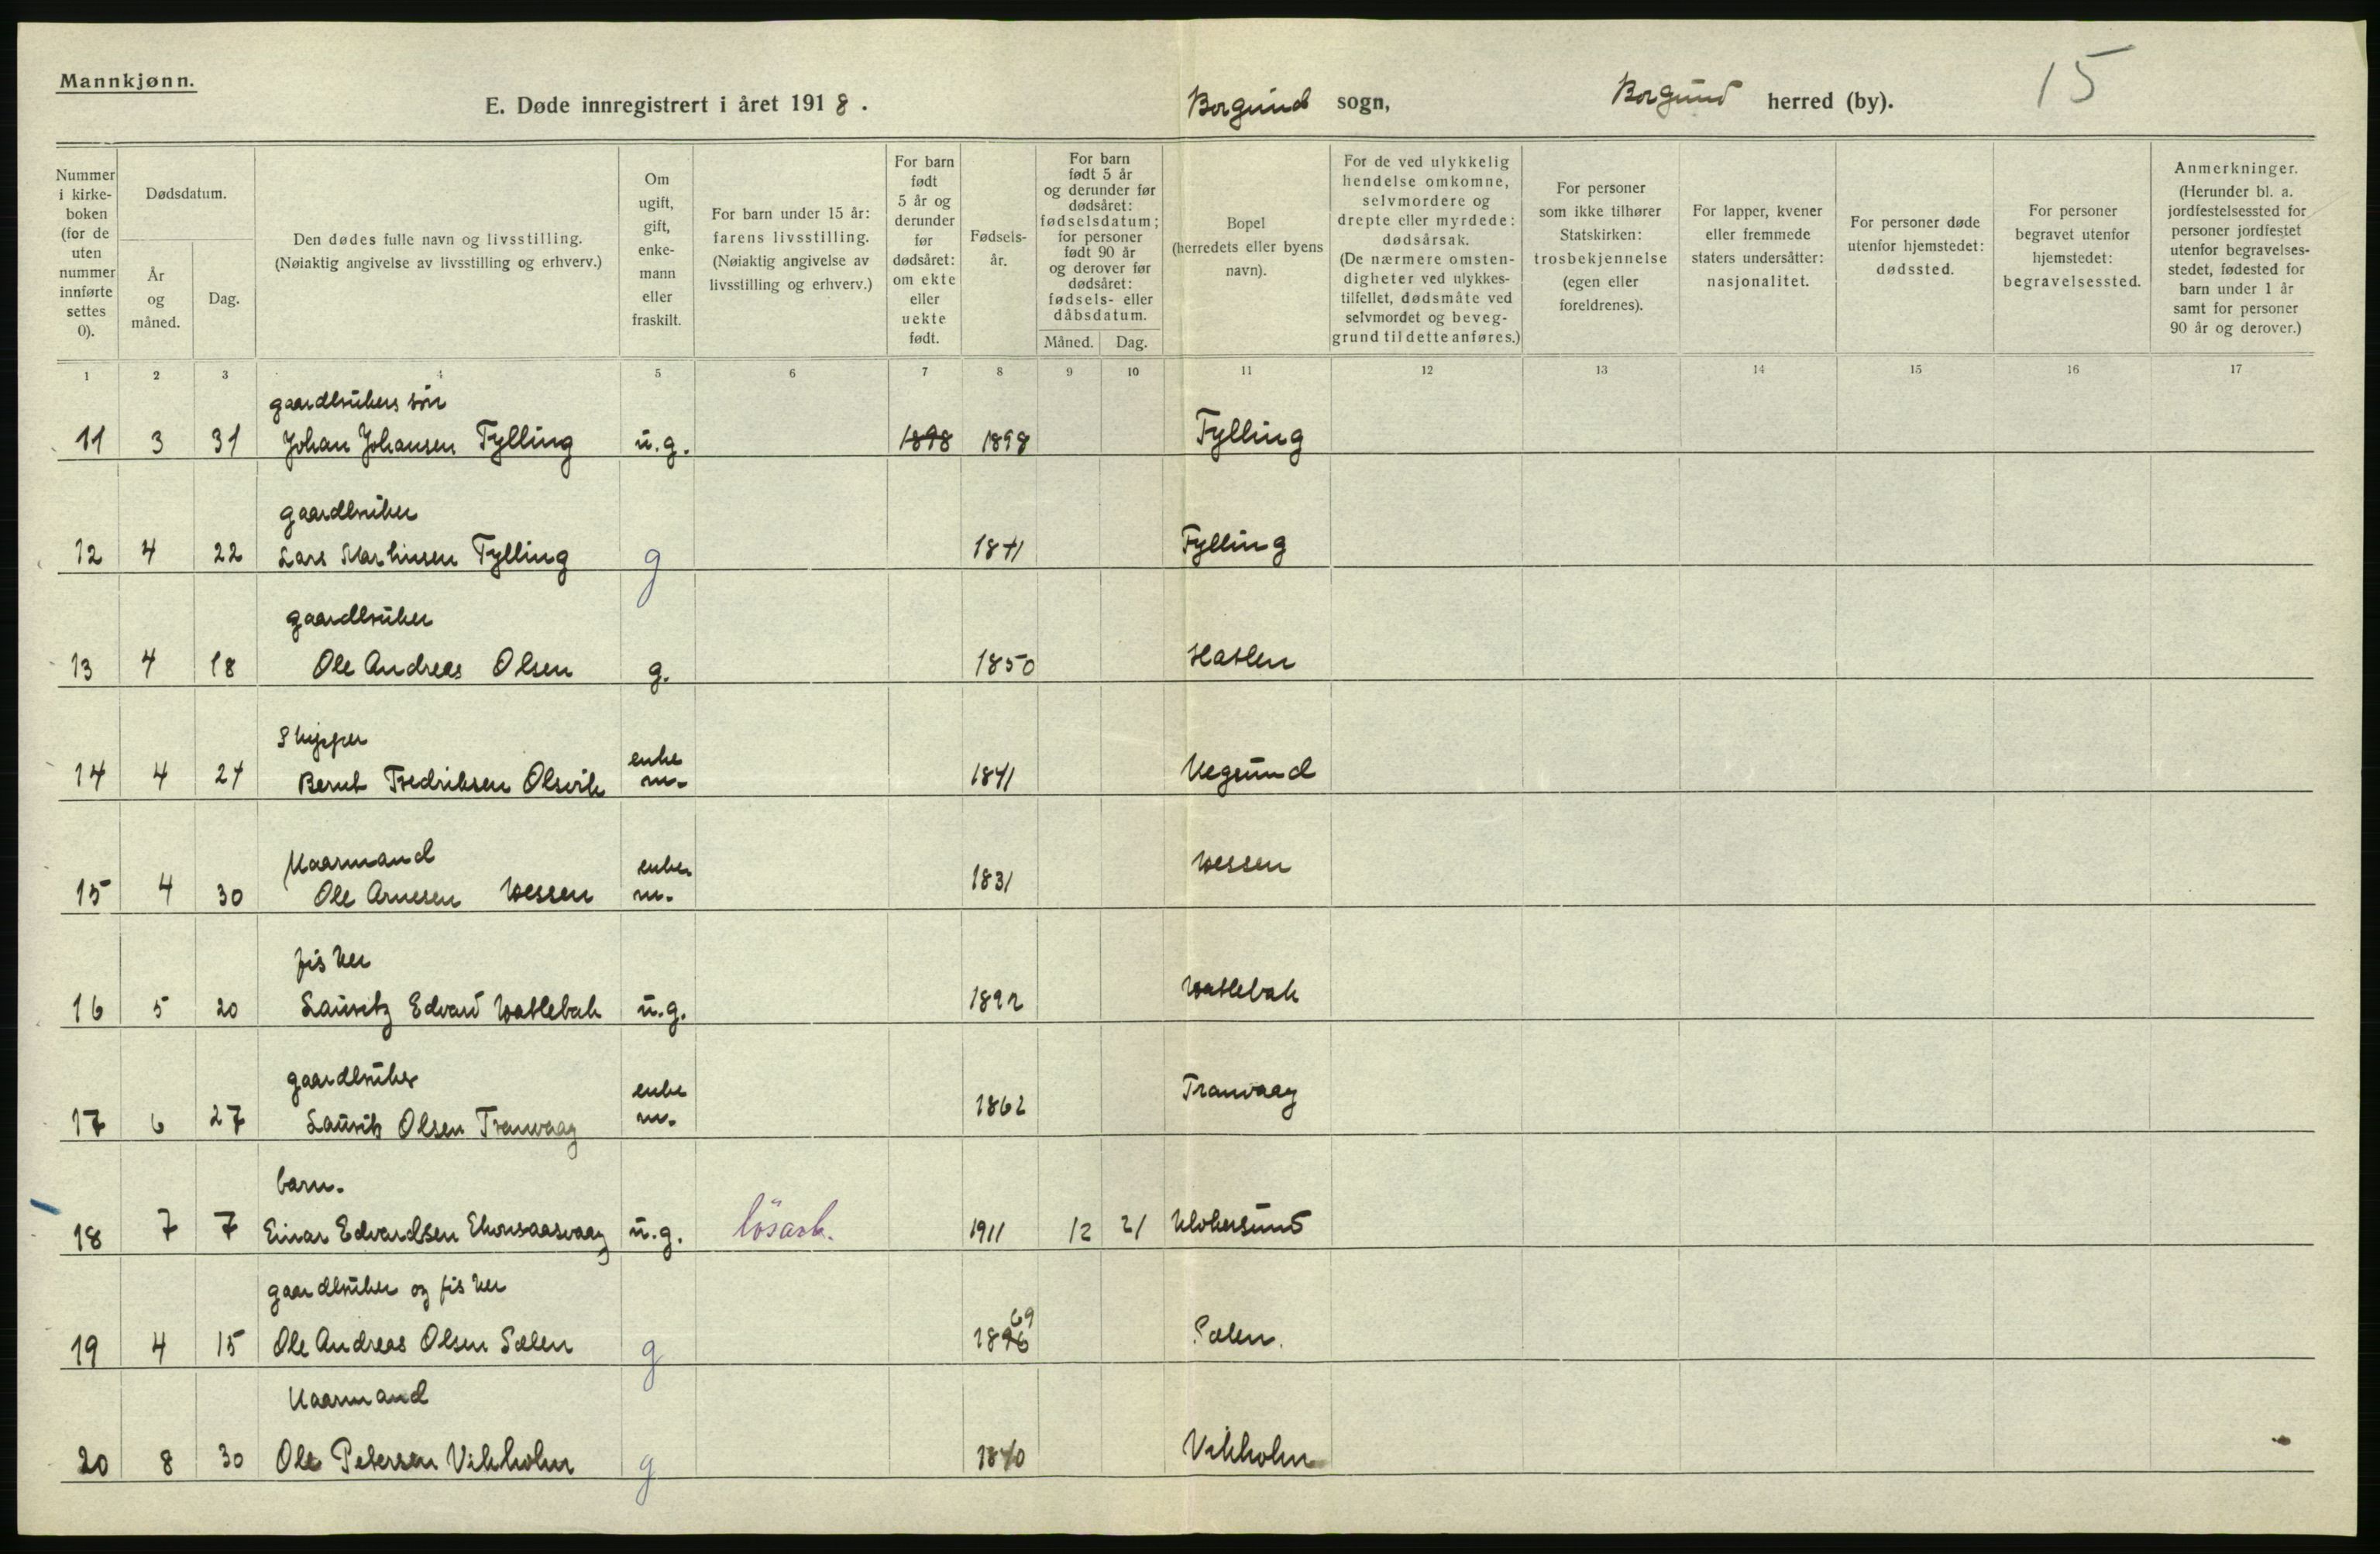 Mannkjønn.
E. Døde innregistrert i året 1918. Borgund sogn, Borgund herred (by). 15
Nummer i kirke-boken (for de uten nummer innførte settes 0).
Dødsdatum.
År og måned.
Dag.
Den dødes fulle navn og livsstilling.
(Nøiaktig angivelse av livsstilling og erhverv.)
Om ugift, gift, enke-mann eller fraskilt.
For barn under 15 år: farens livsstilling. (Nøiaktig angivelse av livsstilling og erhverv.)
For barn født 5 år og derunder før dødsåret: om ekte eller uekte født.
Fødsels-år.
For barn født 5 år og derunder før dødsåret: fødselsdatum; for personer født 90 år og derover før dødsåret: fødsels- eller dåbsdatum.
Måned. Dag.
Bopel (herredets eller byens navn).
For de ved ulykkelig hendelse omkomne, selvmordere og drepte eller myrdede: dødsårsak. (De nærmere omsten-digheter ved ulykkes-tilfellet, dødsmåte ved selvmordet og beveg-grund til dette anføres.)
For personer som ikke tilhører Statskirken: trosbekjennelse (egen eller foreldrenes).
For lapper, kvener eller fremmede staters undersåtter: nasjonalitet.
For personer døde utenfor hjemstedet: dødssted.
For personer begravet utenfor hjemstedet: begravelsessted.
Anmerkninger. (Herunder bl. a. jordfestelsessted for personer jordfestet utenfor begravelses-stedet, fødested for barn under 1 år samt for personer 90 år og derover.)
1 2 3 4 5 6 7 8 9 10 11 12 13 14 15 16 17
gaardbrukers søn
11 3 31 Johan Johansen Fylling u.g. 1898 1898 Fylling
gaardbruker
12 4 22 Lars Martinsen Fylling g 1841 Fylling
gaardbruker
13 4 18 Ole Andreas Olsen g. 1850 Hatlen
Skipper
14 4 24 Bernt Fredriksen Olsvik enke m. 1841 Vegsund
Kaarmand
15 4 30 Ole Arnesen Wessen enke m. 1831 Wessen
fisker
16 5 20 Lauritz Edvard Watlebak u.g. 1892 Watlebak
gaardbruker
17 6 27 Laurits Olsen Tranvaag enke m. 1862 Tranvaag
barn.
18 7 7 Einar Edvardsen Ekonsaasvaag u.g. løsarb. 1911 12 21 Klokersund
gaardbruker og fisker
19 4 15 Ole Andreas Olsen Sælen g 1896 69 Sælen.
Kaarmand
20 8 30 Ole Petersen Vikholm g 1840 Vikholm